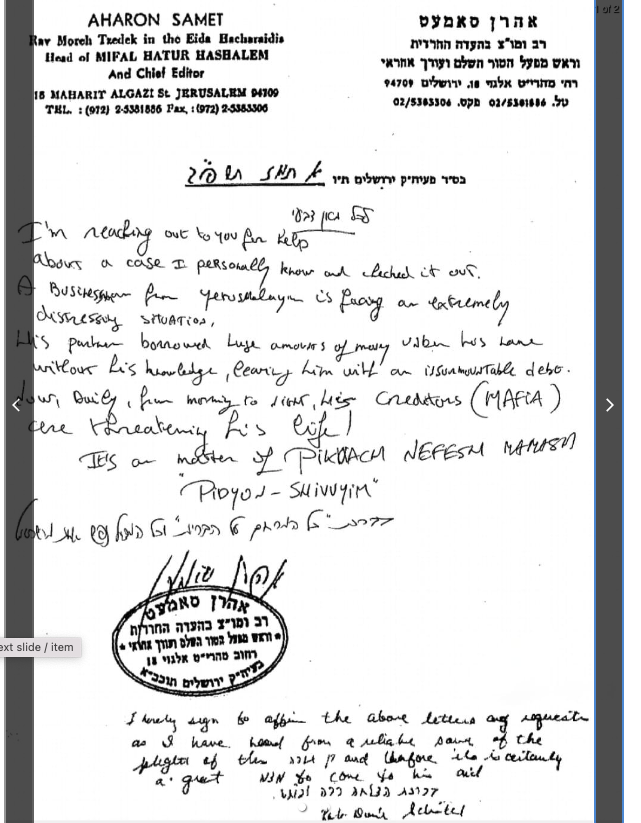 1 of 2
AHARON SAMET
Rav Moreh Tzedek in the Eida Hacharaidis
Head of MIFAL HATUR HASHALEM
And Chief Editor
18 MAHARIT ALGAZI St. JERUSALEM 94709
TEL. : (972) 2-5381886 Fax, : (972) 2-5383306
אהרן סאמעט
רב ומו"צ בהעדה החרדית
וראש מפעל הטור השלם ועורך אחראי
רח' מהרי"ט אלגזי 18, ירושלים 94709
טל. 02/5381886 פקס. 02/5383306
בס"ד פעיה"ק ירושלים ת"ו
I'm reaching out to you for help
about a case I personally know and checked it out.
A Businessman from Yerushalayim is facing an extremely
distressing situation,
His partner borrowed huge amounts of money under his name
without his knowledge, leaving him with an issurmountable debt.
Now, Daily, from morning to night, His Creditors (MAFIA)
are threatening his life!
It's an matter of PIKUACH NEFESH MAMASH
"PIDYON - SHIVUYIM"
אהרן סאמעט
רב ומו"צ בהעדה החרדית
וראש מפעל הטור השלם ועורך אחראי
רחוב מהרי"ט אלגזי 18
בעיה"ק ירושלים תובב"א
ext slide / item
I hereby sign to affirm the above letters and requests
as I have heard from a reliable source of the
plight of this and therefore it is certainly
a great to come to his aid